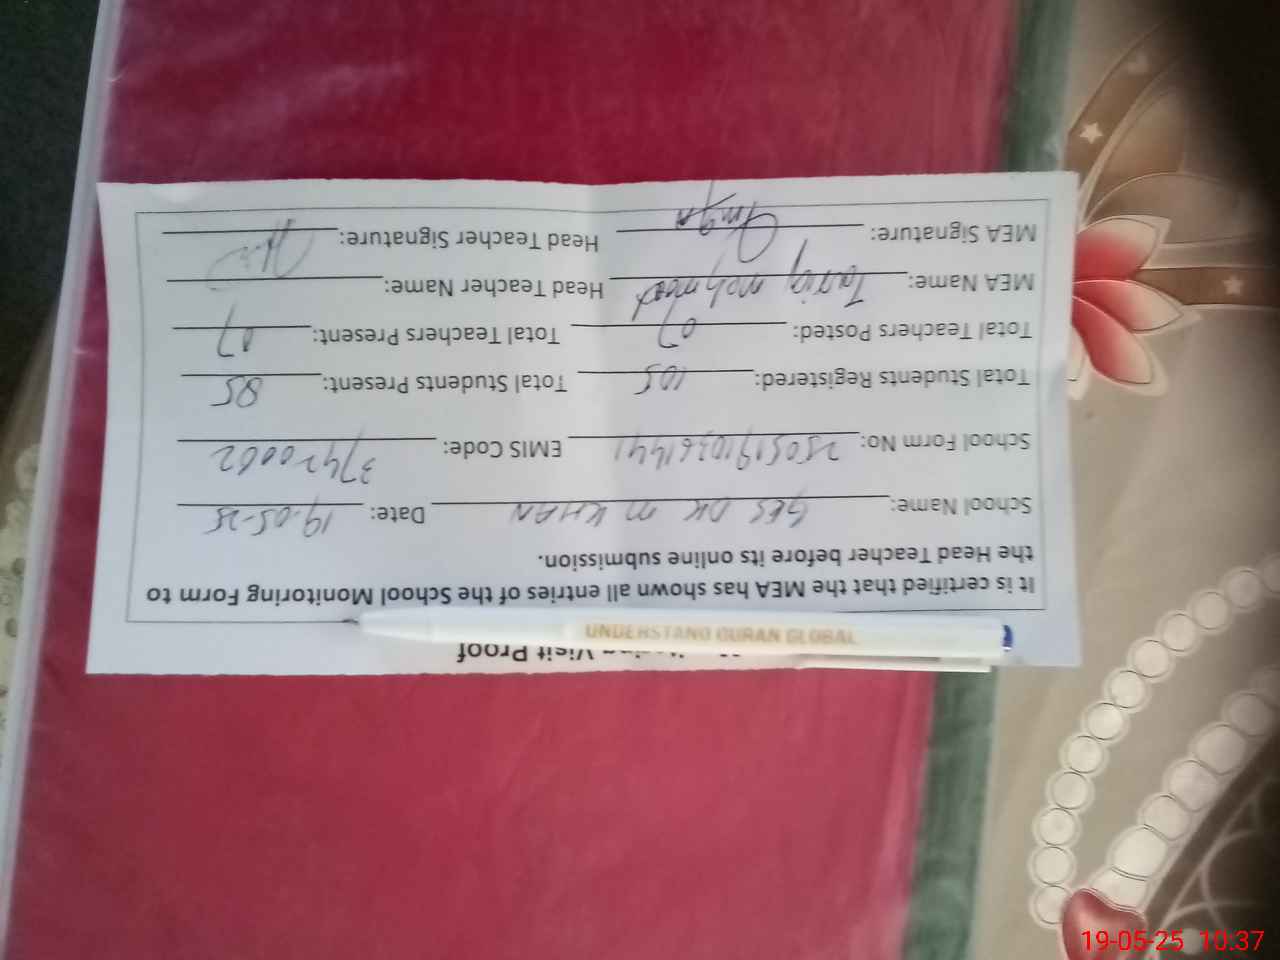 Visit Proof
UNDERSTAND QURAN GLOBAL
It is certified that the MEA has shown all entries of the School Monitoring Form to
the Head Teacher before its online submission.
School Name: GES DK M KHAN Date: 19-05-25
School Form No: EMIS Code: 37420062
Total Students Registered: 105 Total Students Present: 85
Total Teachers Posted: 07 Total Teachers Present: 07
MEA Name: Tariq mehmood Head Teacher Name:
MEA Signature: Head Teacher Signature:
19-05-25 10:37